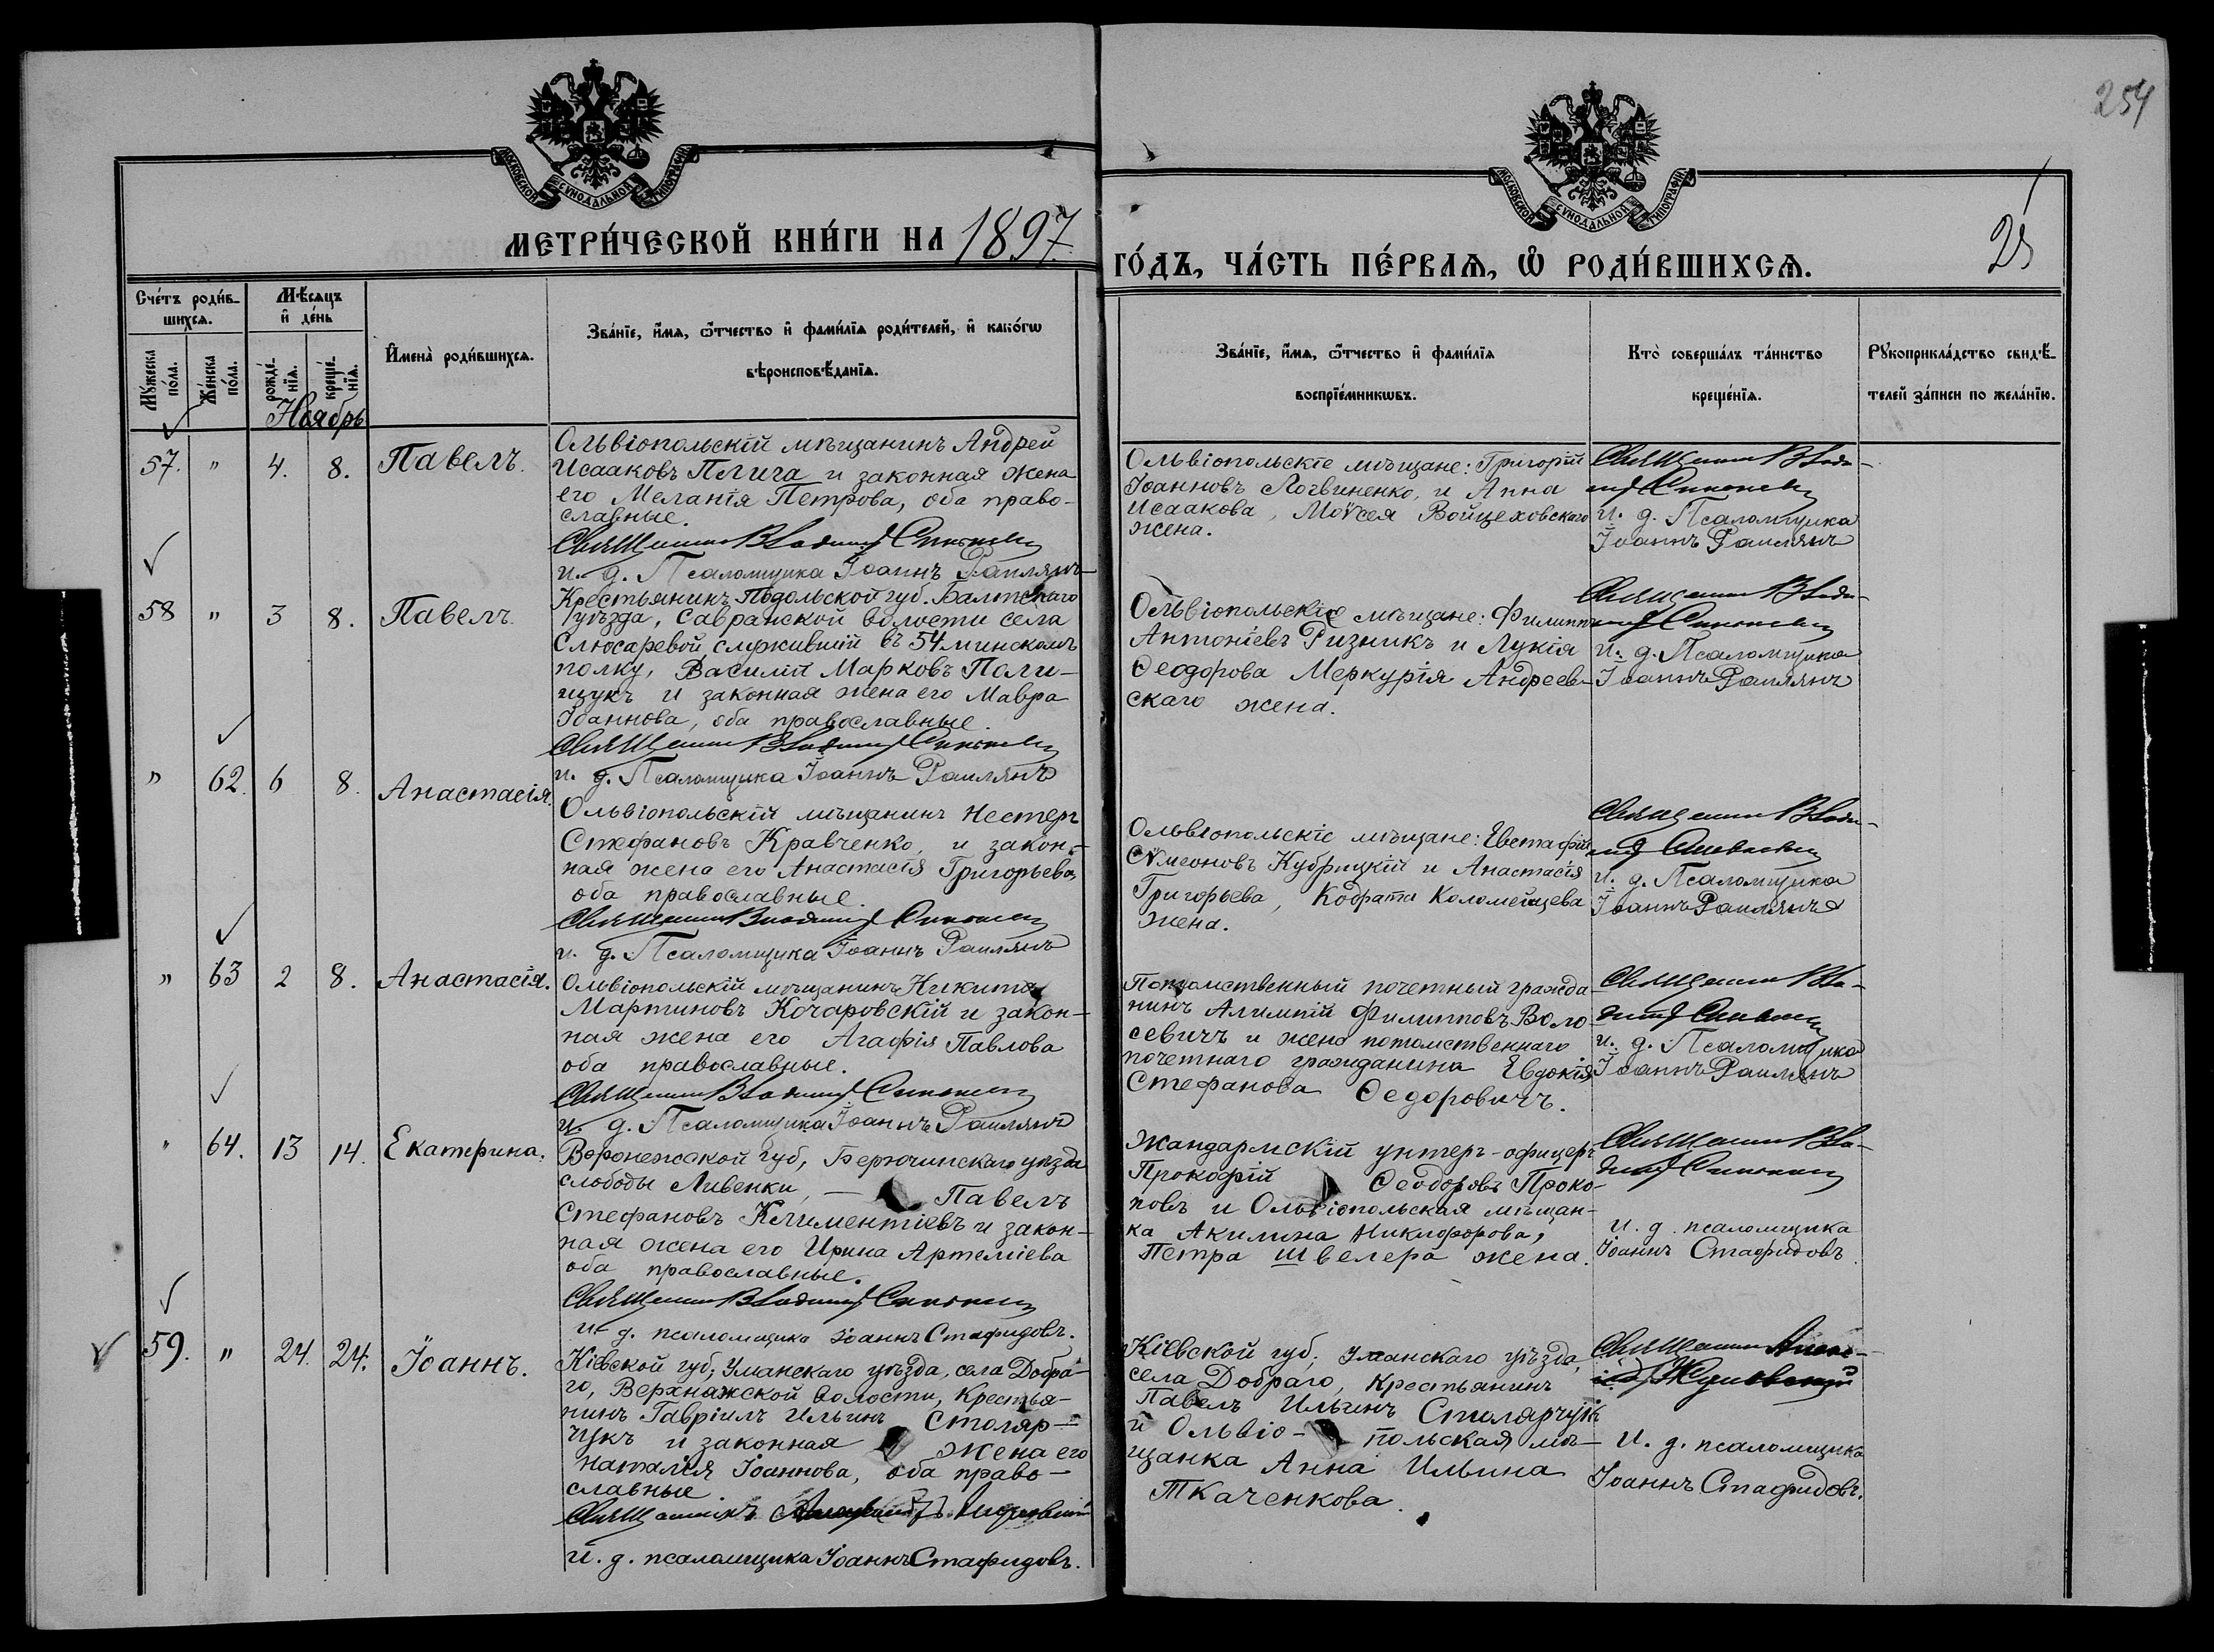 254
25
МОСКОВСКОЙ СУНОДАЛЬНОЙ ТИПОГРАФІИ
МОСКОВСКОЙ СУНОДАЛЬНОЙ ТИПОГРАФІИ
МЕТРИ́ЧЕСКОЙ КНИ́ГИ НА 1897
ГО́ДЪ, ЧА́СТЬ ПЕ́РВАѦ, Ѽ РОДИ́ВШИХСѦ.
Сче́тъ роди́в-
шихсѧ.
Мѣ́сяцъ
и҆ де́нь
Мꙋ́жеска
по́ла.
Же́нска
по́ла.
рожде́-
нїѧ.
креще́-
нїѧ.
И҆мена̀ роди́вшихсѧ.
Зва́нїе, и҆́мѧ, ѻ҆́тчество и҆ фами́лїѧ роди́телей, и҆ како́гѡ
вѣроисповѣ́данїѧ.
Зва́нїе, и҆́мѧ, ѻ҆́тчество и҆ фами́лїѧ
воспрїе́мникѡвъ.
Кто̀ соверша́лъ та́инство
креще́нїѧ.
Рꙋкоприкла́дство свидѣ́-
телей за́писи по жела́нїю.
Ноябрь
57. " 4. 8. Павелъ.
Ольвіопольскій мѣщанинъ Андрей
Исааковъ Плига и законная жена
его Меланія Петрова, оба право-
славные.
Священникъ Владимiръ
и. д. Псаломщика Іоаннъ Раилянъ
Ольвіопольскіе мѣщане: Григорій
Іоанновъ Логвиненко, и Анна
Исаакова, Моѵсея Войцеховскаго
жена.
Священникъ Влади-
міръ
и. д. Псаломщика
Іоаннъ Раилянъ
58 " 3 8. Павелъ.
Крестьянинъ Подольской губ. Балтскаго
уѣзда, Савранской волости села
Слюсаревой, служившій въ 54 минскомъ
полку, Василій Марковъ Поли-
щукъ и законная жена его Мавра
Іоаннова, оба православные.
Священникъ Владимiръ
и. д. Псаломщика Іоаннъ Раилянъ
Ольвіопольскіе мѣщане: Филиппъ
Антоніевъ Ризникъ и Лукія
Ѳеодорова Меркурія Андреев-
скаго жена.
Священникъ Влади-
міръ
и. д. Псаломщика
Іоаннъ Раилянъ
" 62. 6 8. Анастасія.
Ольвіопольскій мѣщанинъ Нестеръ
Стефановъ Кравченко, и закон-
ная жена его Анастасія Григорьева,
оба православные.
Священникъ Владимiръ
и. д. Псаломщика Іоаннъ Раилянъ
Ольвіопольскіе мѣщане: Евстафій
Сѵмеоновъ Кубрицкій и Анастасія
Григорьева, Кодрата Коломейцева
жена.
Священникъ Влади-
міръ
и. д. Псаломщика
Іоаннъ Раилянъ
" 63 2 8. Анастасія.
Ольвіопольскій мѣщанинъ Никита
Мартиновъ Кочаровскій и закон-
ная жена его Агафія Павлова
оба православные.
Священникъ Владимiръ
и. д. Псаломщика Іоаннъ Раилянъ
Потомственный почетный гражда-
нинъ Алимпій Филипповъ Воло-
севичъ и жена потомственнаго
почетнаго гражданина Евдокія
Стефанова Ѳедоровичъ.
Священникъ Вла-
диміръ
и. д. Псаломщика
Іоаннъ Раилянъ
" 64. 13 14. Екатерина.
Воронежской губ, Берючинскаго уѣзда
слободы Ливенки, — Павелъ
Стефановъ Климентіевъ и закон-
ная жена его Ирина Артеміева
оба православные.
Священникъ Владимiръ
и. д. псаломщика Іоаннъ Стафидовъ.
Жандармскій унтеръ-офицеръ
Прокофій Ѳеодоровъ Проко-
повъ и Ольвіопольская мѣщан-
ка Акилина Никифорова,
Петра Швелера жена.
Священникъ Вла-
диміръ
и. д. псаломщика
Іоаннъ Стафидовъ.
59. " 24. 24. Іоаннъ.
Кіевской губ, Уманскаго уѣзда, села Добра-
го, Верхняжской волости, Крестья-
нинъ Гавріилъ Ильинъ Столяр-
чукъ и законная жена его
Наталія Іоаннова, оба право-
славные.
Священникъ
и. д. псаломщика Іоаннъ Стафидовъ.
Кіевской губ, Уманскаго уѣзда,
села Добраго, Крестьянинъ
Павелъ Ильинъ Столярчукъ
и Ольвіо- польская мѣ-
щанка Анна Ильина
Ткаченкова.
Священникъ
и. д. псаломщика
Іоаннъ Стафидовъ.